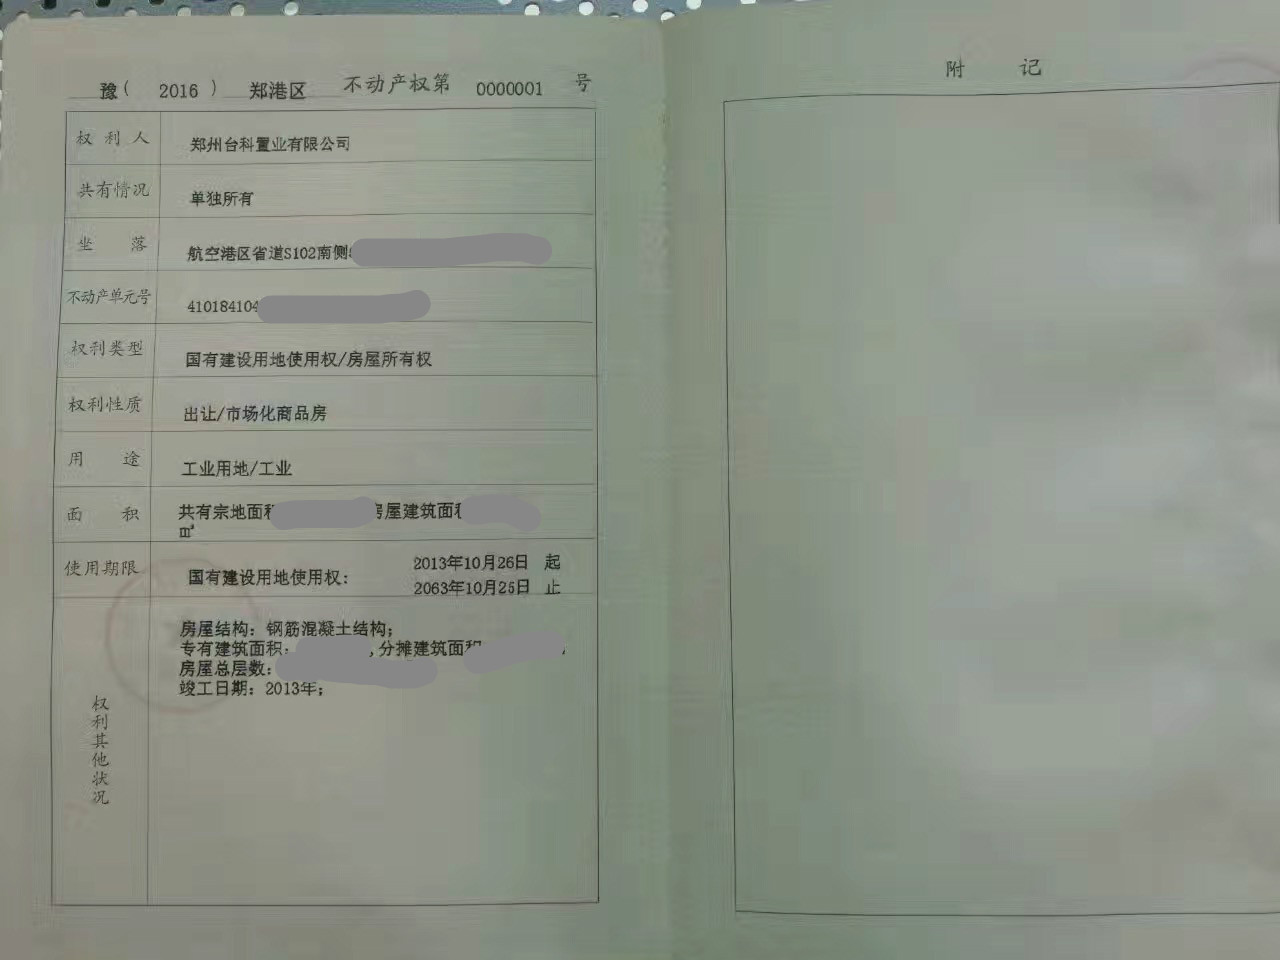 豫( 2016 ) 郑港区 不动产权第 0000001 号
权利人 郑州台科置业有限公司
共有情况 单独所有
坐落 航空港区省道S102南侧
不动产单元号 410184104
权利类型 国有建设用地使用权/房屋所有权
权利性质 出让/市场化商品房
用途 工业用地/工业
面积 共有宗地面积 房屋建筑面积
㎡
使用期限 国有建设用地使用权: 2013年10月26日 起
2063年10月25日 止
权利其他状况
房屋结构: 钢筋混凝土结构;
专有建筑面积: ,分摊建筑面积
房屋总层数:
竣工日期: 2013年;
附记